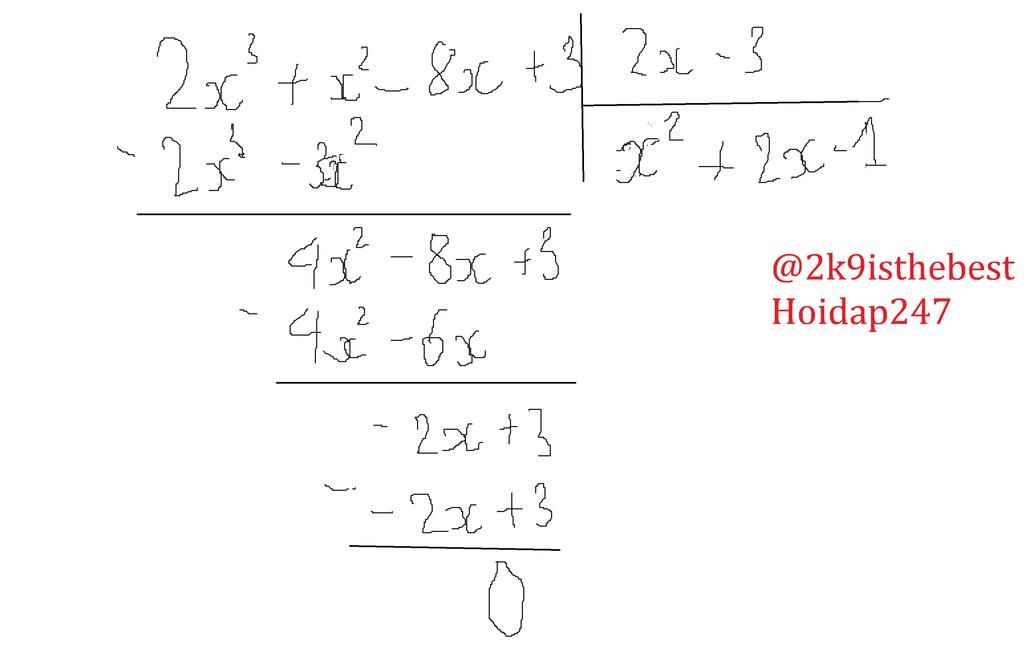 2x³ + x² - 8x + 3 | 2x - 3
- 2x³ - 3x²
x² + 2x - 1
4x² - 8x + 3
- 4x² - 6x
- 2x + 3
- - 2x + 3
0
@2k9isthebest
Hoidap247